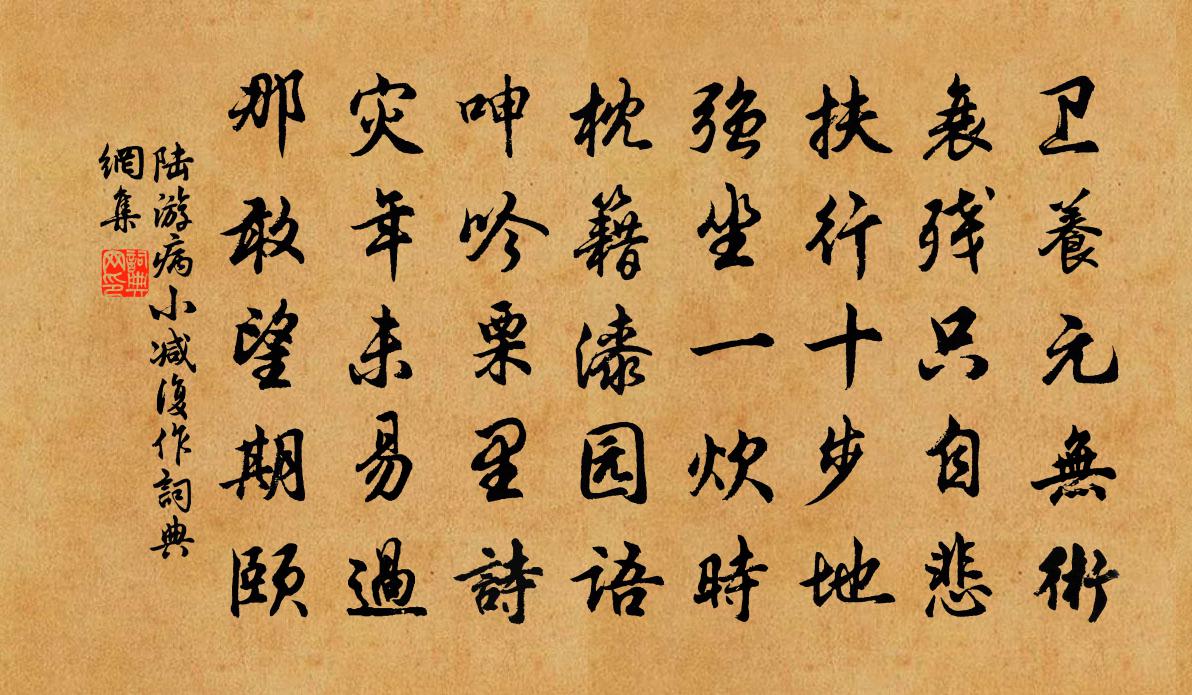 卫養元無術
衰残只自悲
扶行十步地
强坐一炊時
枕籍漆园语
呻吟栗里詩
灾年未易過
那敢望期颐
陆游病小减復作詞典
網集
詞典网印